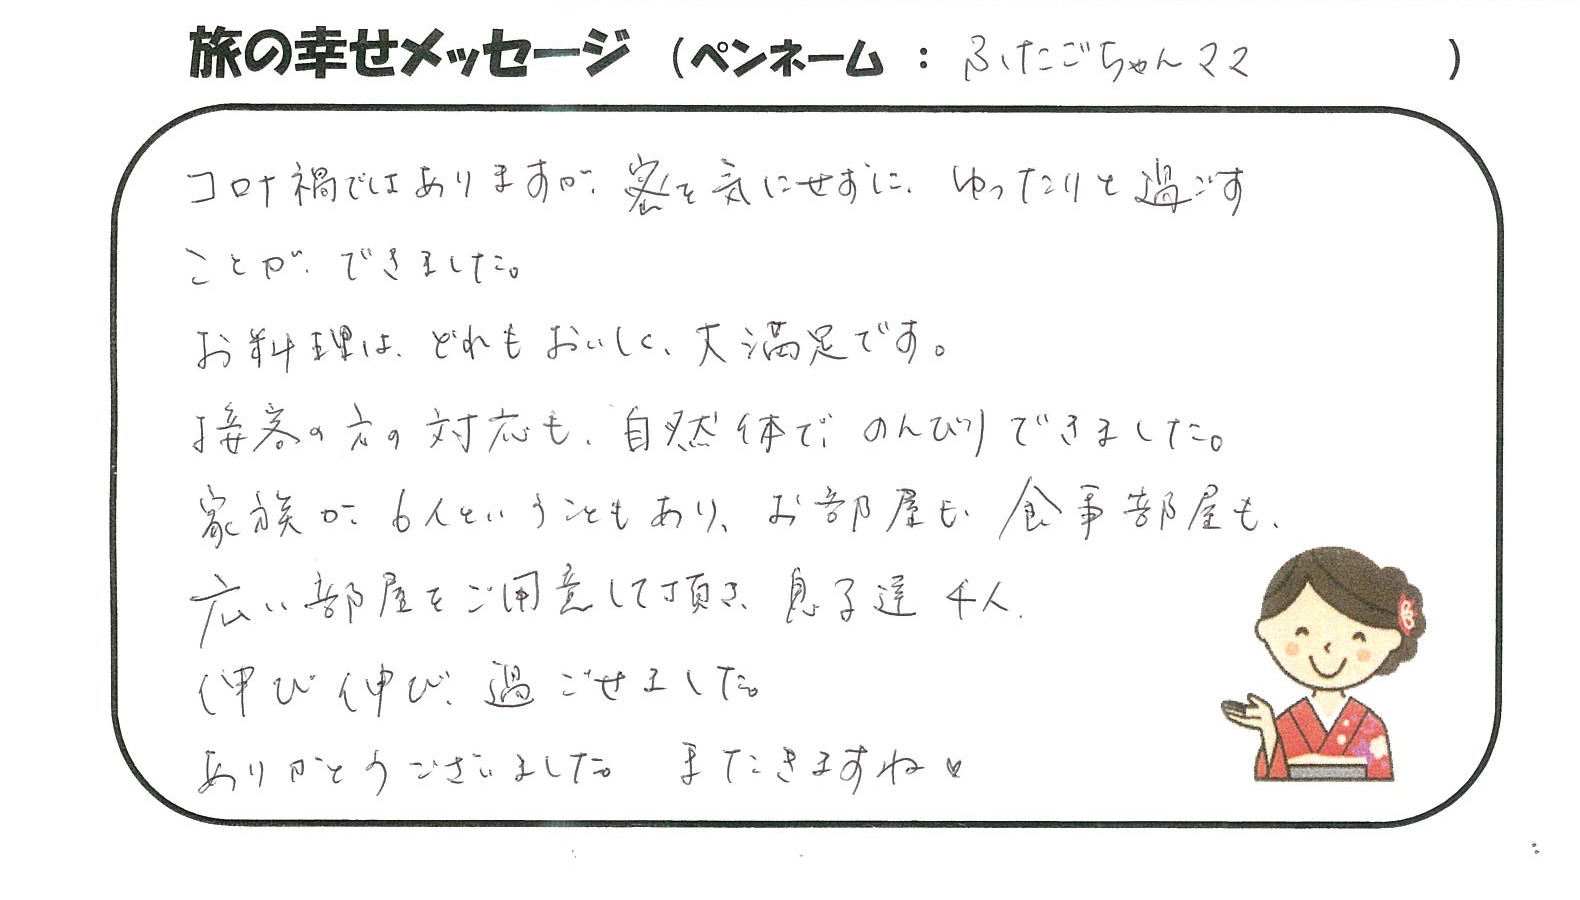 旅の幸せメッセージ (ペンネーム : ふたごちゃんママ )
コロナ禍ではありますが、密を気にせずに、ゆったりと過ごす
ことが、できました。
お料理は、どれもおいしく、大満足です。
接客の方の対応も、自然体で、のんびりできました。
家族が、6人ということもあり、お部屋も、食事部屋も、
広い部屋をご用意して頂き、息子達4人、
伸び伸び、過ごせました。
ありがとうございました。またきますね♥